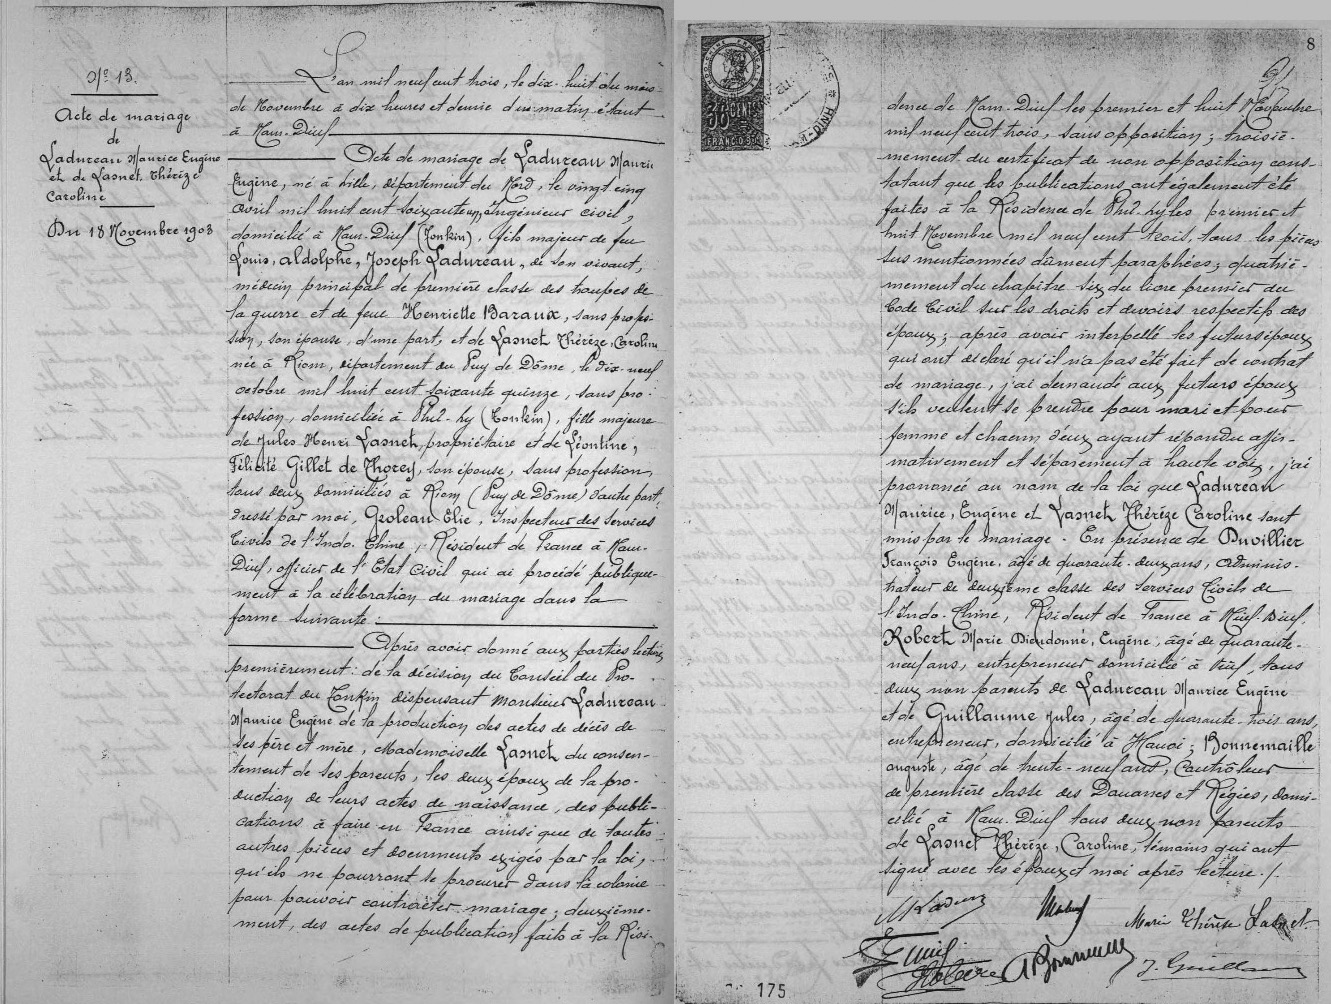 N° 13.
Acte de mariage
de
Ladureau Maurice Eugène
et de Lasnet. Thérèze
Caroline
Du 18 Novembre 1903
L'an mil neuf cent trois, le dix-huit du mois
de Novembre à dix heures et demie du matin étant
à Nam-Dinh
Acte de mariage de Ladureau Maurice
Eugène, né à Lille, département du Nord, le vingt cinq
avril mil huit cent soixante Ingénieur civil,
domicilié à Nam-Dinh (Tonkin), fils majeur de feu
Louis, aldolphe, Joseph Ladureau, de son vivant,
médecin principal de première classe des troupes de
la guerre et de feue Henriette Baraux, sans profes-
sion, son épouse, d'une part, et de Lasnet Thérèze, Caroline
née à Riom, département du Puy de Dôme, le dix-neuf
octobre mil huit cent soixante quinze, sans pro-
fession, domiciliée à Phu-ly (Tonkin), fille majeure
de Jules Henri Lasnet, propriétaire et de Léontine,
Félicité Gillet de Thorey, son épouse, sans profession,
tous deux domiciliés à Riom (Puy de Dôme) d'autre part,
dressé par moi, Groleau Elie, Inspecteur des services
Civils de l'Indo-Chine, Résident de France à Nam-
Dinh, officier de l'Etat Civil qui ai procédé publique-
ment à la célébration du mariage dans la
forme suivante:
Après avoir donné aux parties lecture
premièrement: de la décision du Conseil du Pro-
tectorat du Tonkin dispensant Monsieur Ladureau
Maurice Eugène de la production des actes de décès de
ses père et mère, Mademoiselle Lasnet du consen-
tement de ses parents, les deux époux de la pro-
duction de leurs actes de naissance, des publi-
cations à faire en France ainsi que de toutes
autres pièces et documents exigés par la loi,
qu'ils ne pourront se procurer dans la colonie
pour pouvoir contracter mariage; deuxième-
ment, des actes de publication faits à la Rési-
8
INDO-CHINE FRANÇAISE
CENT
FRANC 0.90
HNID-
dence de Nam-Dinh les premier et huit Novembre
mil neuf cent trois, sans opposition; troisiè-
mement du certificat de non opposition cons-
tatant que les publications ont également été
faites à la Résidence de Phu-ly les premier et
huit Novembre mil neuf cent trois, tous les pièces
sus mentionnées dûment paraphées; quatriè-
mement du chapitre six du livre premier du
Code Civil sur les droits et devoirs respectifs des
époux; après avoir interpellé les futurs époux
qui ont déclaré qu'il n'a pas été fait de contrat
de mariage, j'ai demandé aux futurs époux
s'ils veulent se prendre pour mari et pour
femme et chacun d'eux ayant répondu affir-
mativement et séparément à haute voix, j'ai
prononcé au nom de la loi que Ladureau
Maurice, Eugène et Lasnet Thérèze Caroline sont
unis par le mariage. En présence de Duvillier
François Eugène, âgé de quarante-deux ans, adminis-
trateur de deuxième classe des services Civils de
l'Indo-Chine, Résident de France à
Robert Marie Dieudonné, Eugène, âgé de quarante-
neuf ans, entrepreneur domicilié à tous
deux non parents de Ladureau Maurice Eugène
et de Guillaume Jules, âgé de quarante-trois ans,
entrepreneur, domicilié à Hanoi; Bonnemaille
auguste, âgé de trente-neuf ans, Contrôleur
de première classe des Douanes et Régies, domi-
cilié à Nam-Dinh tous deux non parents
de Lasnet Thérèze, Caroline, témoins qui ont
signé avec les époux et moi après lecture./.
Marie Thérèse Lasnet
A Bonnemaille
J. Guillaume
175